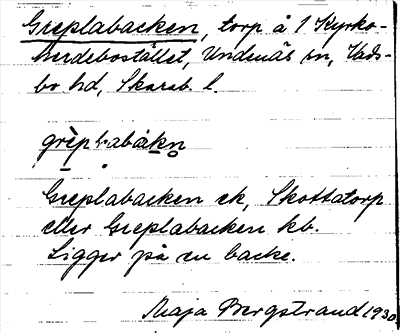 Greplabacken, torp å 1 Kyrko-
herdebostället, Undenäs sn, Vads-
bo hd, Skarab. l.
grèplabàkn
Greplabacken ek, Skottatorp
eller Greplabacken kb.
Ligger på en backe.
Maja Bergstrand 1930